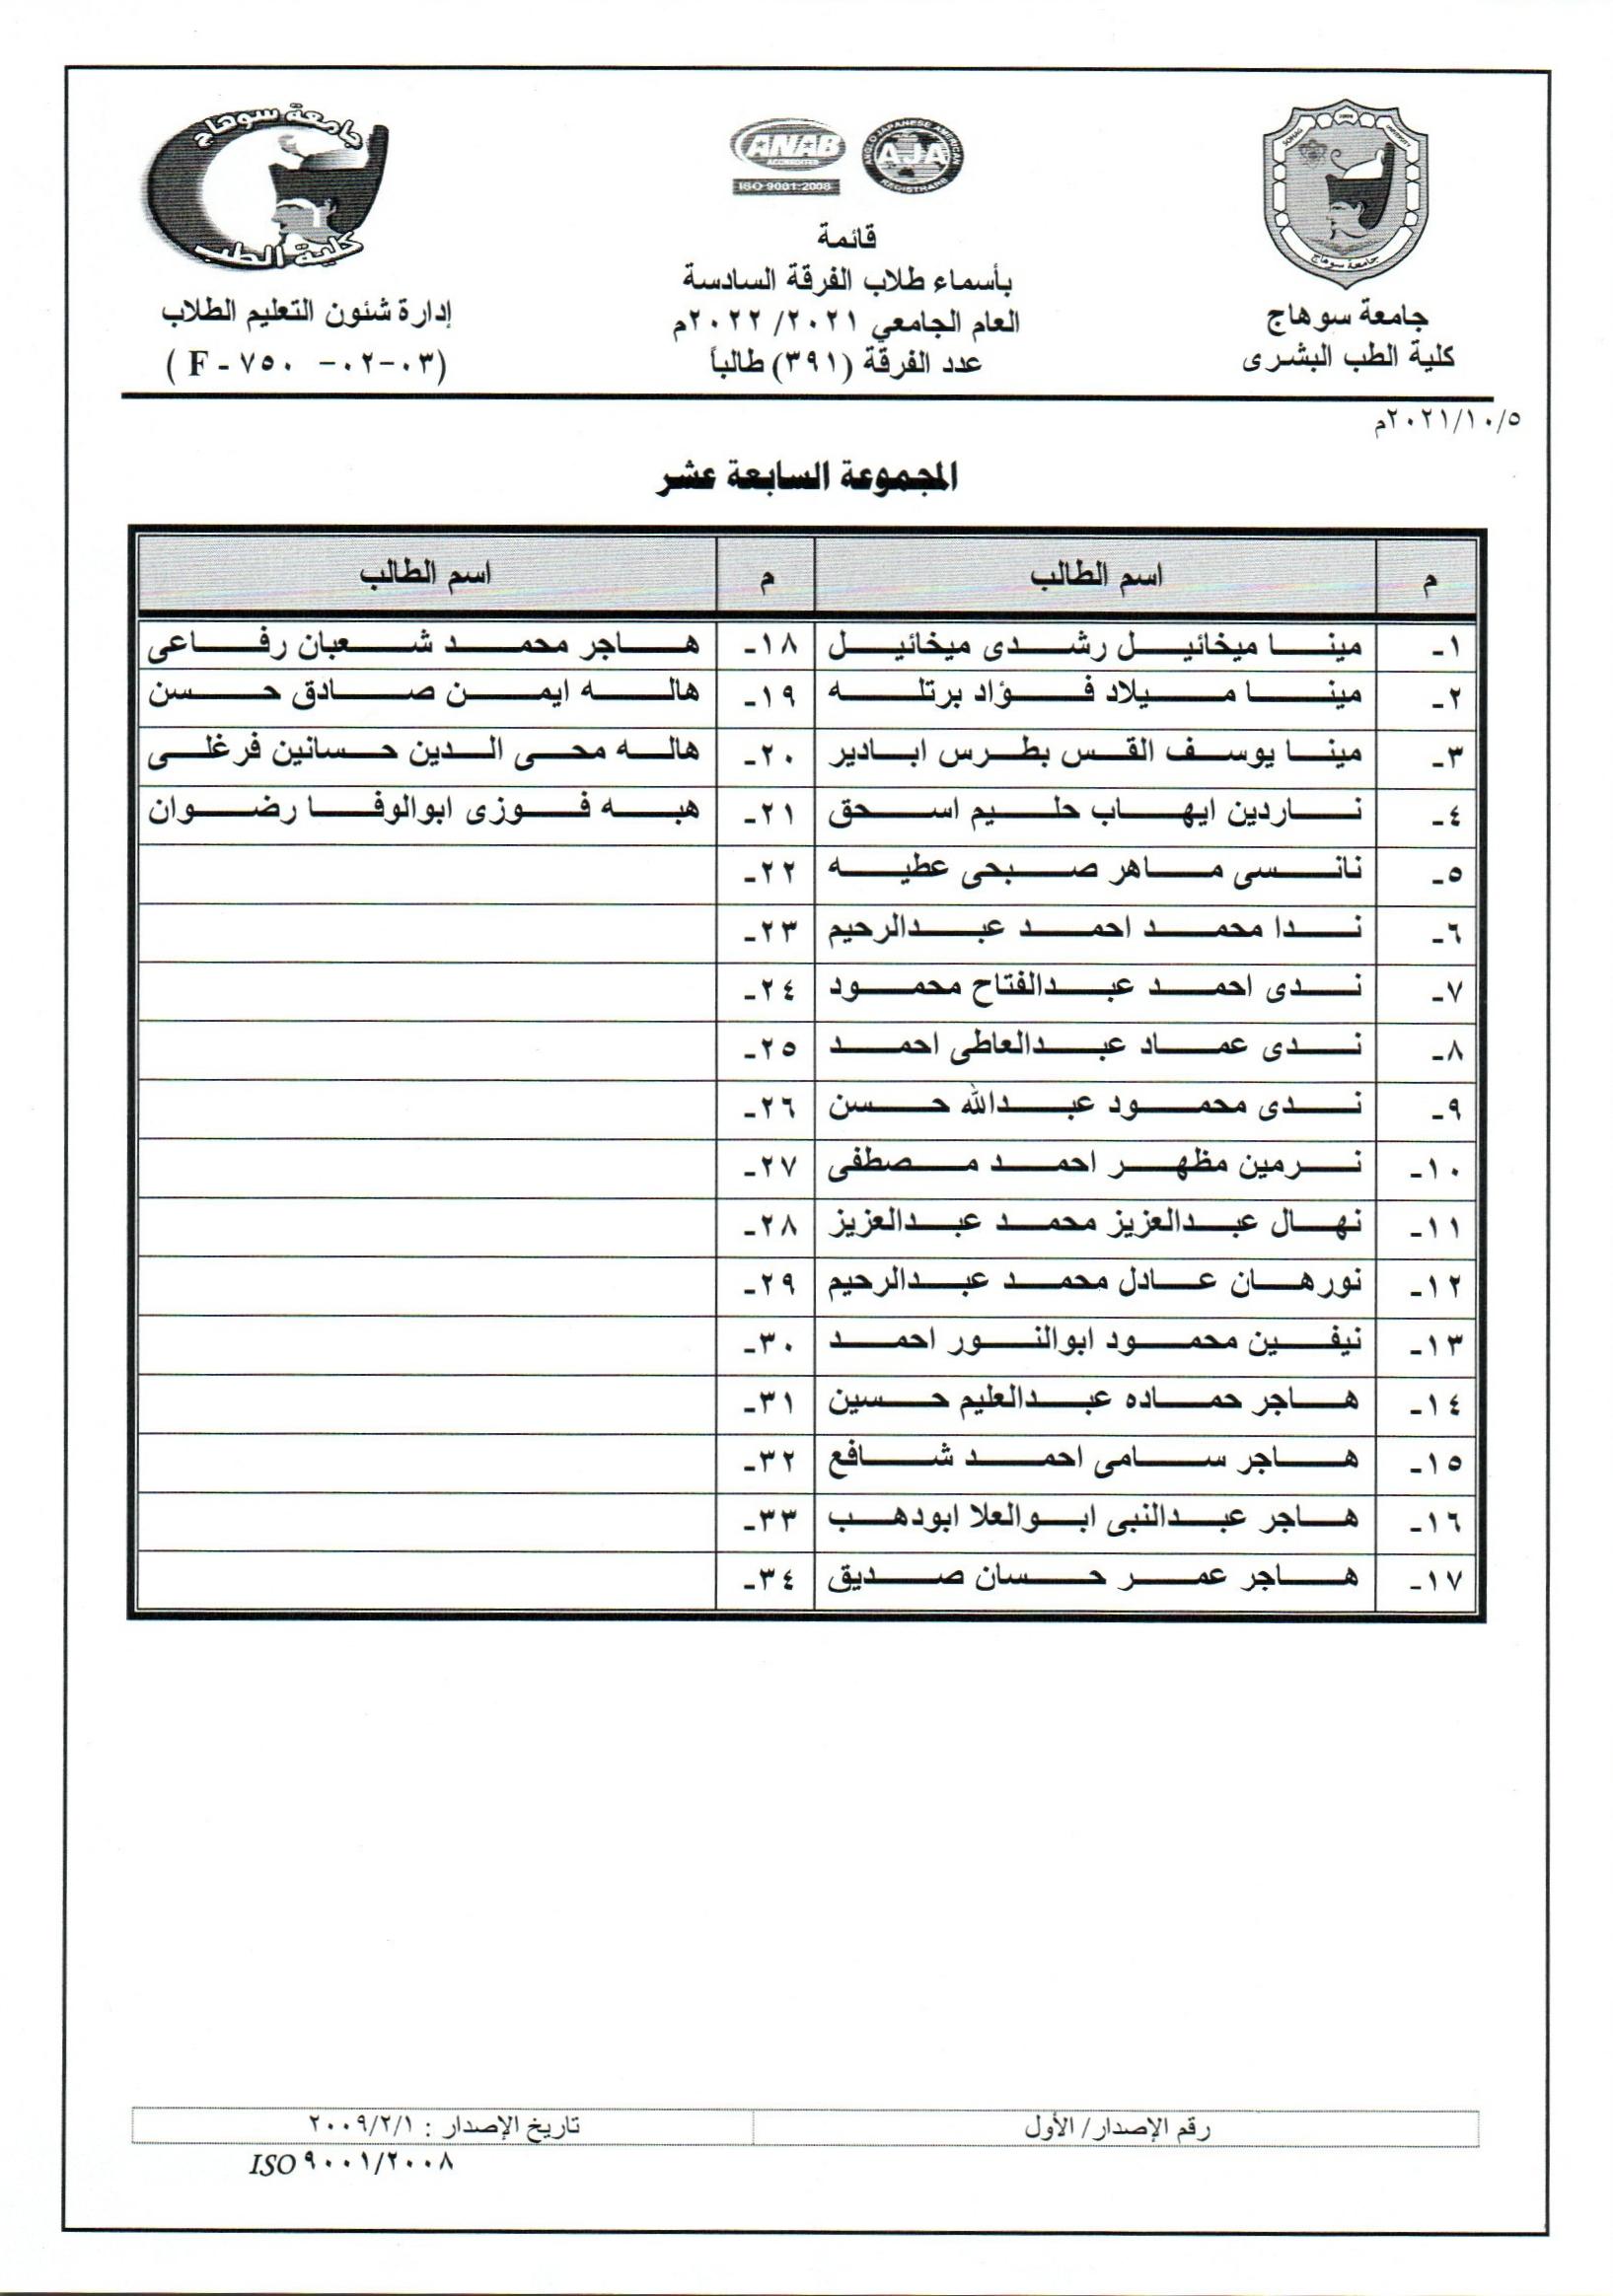 جامعة سوهاج
كلية الطب
ANAB
ACCREDITED
ISO 9001:2008
ANGLO JAPANESE AMERICAN
AJA
REGISTRARS
SOHAG UNIVERSITY
جامعة سوهاج
جامعة سوهاج
كلية الطب البشرى
قائمة
بأسماء طلاب الفرقة السادسة
العام الجامعي ٢٠٢١/ ٢٠٢٢م
عدد الفرقة (٣٩١) طالباً
إدارة شئون التعليم الطلاب
(F - ٧٥٠ -٠٢-٠٣)
٢٠٢١/١٠/٥م
المجموعة السابعة عشر
م اسم الطالب م اسم الطالب
١- مينا ميخائيل رشدى ميخائيل ١٨- هاجر محمد شعبان رفاعى
٢- مينا ميلاد فؤاد برتله ١٩- هاله ايمن صادق حسن
٣- مينا يوسف القس بطرس ابادير ٢٠- هاله محى الدين حسانين فرغلى
٤- ناردين ايهاب حليم اسحق ٢١- هبه فوزى ابوالوفا رضوان
٥- نانسى ماهر صبحى عطيه ٢٢-
٦- ندا محمد احمد عبدالرحيم ٢٣-
٧- ندى احمد عبدالفتاح محمود ٢٤-
٨- ندى عماد عبدالعاطى احمد ٢٥-
٩- ندى محمود عبدالله حسن ٢٦-
١٠- نرمين مظهر احمد مصطفى ٢٧-
١١- نهال عبدالعزيز محمد عبدالعزيز ٢٨-
١٢- نورهان عادل محمد عبدالرحيم ٢٩-
١٣- نيفين محمود ابوالنور احمد ٣٠-
١٤- هاجر حماده عبدالعليم حسين ٣١-
١٥- هاجر سامى احمد شافع ٣٢-
١٦- هاجر عبدالنبى ابوالعلا ابودهب ٣٣-
١٧- هاجر عمر حسان صديق ٣٤-
رقم الإصدار/ الأول تاريخ الإصدار : ٢٠٠٩/٢/١
ISO ٩٠٠١/٢٠٠٨